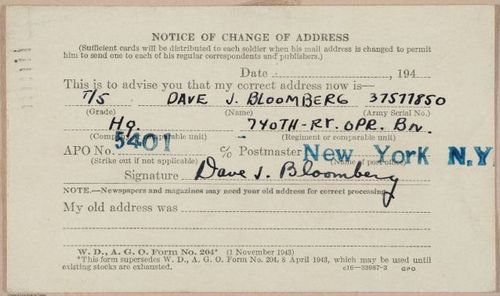 NOTICE OF CHANGE OF ADDRESS
(Sufficient cards will be distributed to each soldier when his mail address is changed to permit
him to send one to each of his regular correspondents and publishers.)
Date ............, 194....
This is to advise you that my correct address now is—
T/5 DAVE J. BLOOMBERG 37577850
(Grade) (Name) (Army Serial No.)
Hq. 740TH-RY. OPR. BN.
(Company or comparable unit) (Regiment or comparable unit)
APO No. 5401 c/o Postmaster New York N.Y
(Strike out if not applicable) (Name of port of
Signature Dave J. Bloomberg
NOTE.—Newspapers and magazines may need your old address for correct processing.
My old address was
W. D., A. G. O. Form No. 204* (1 November 1943)
*This form supersedes W. D., A. G. O. Form No. 204, 8 April 1943, which may be used until
existing stocks are exhausted. c16—33987-3 GPO